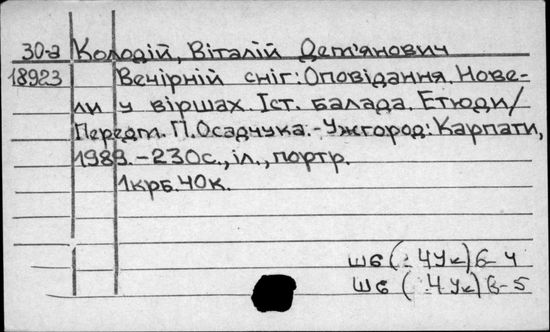 30-а Колодій, Віталій Дем'янович
18923 Вечірній сніг: Оповідання. Нове-
ли у віршах. Іст. балада. Етюди/
Передм. П.Осадчука.-Ужгород: Карпати,
1989.-230с., іл., портр.
1крб.40к.
ШБ (:4Ук) 6-4
ШБ (:4Ук) 6-5